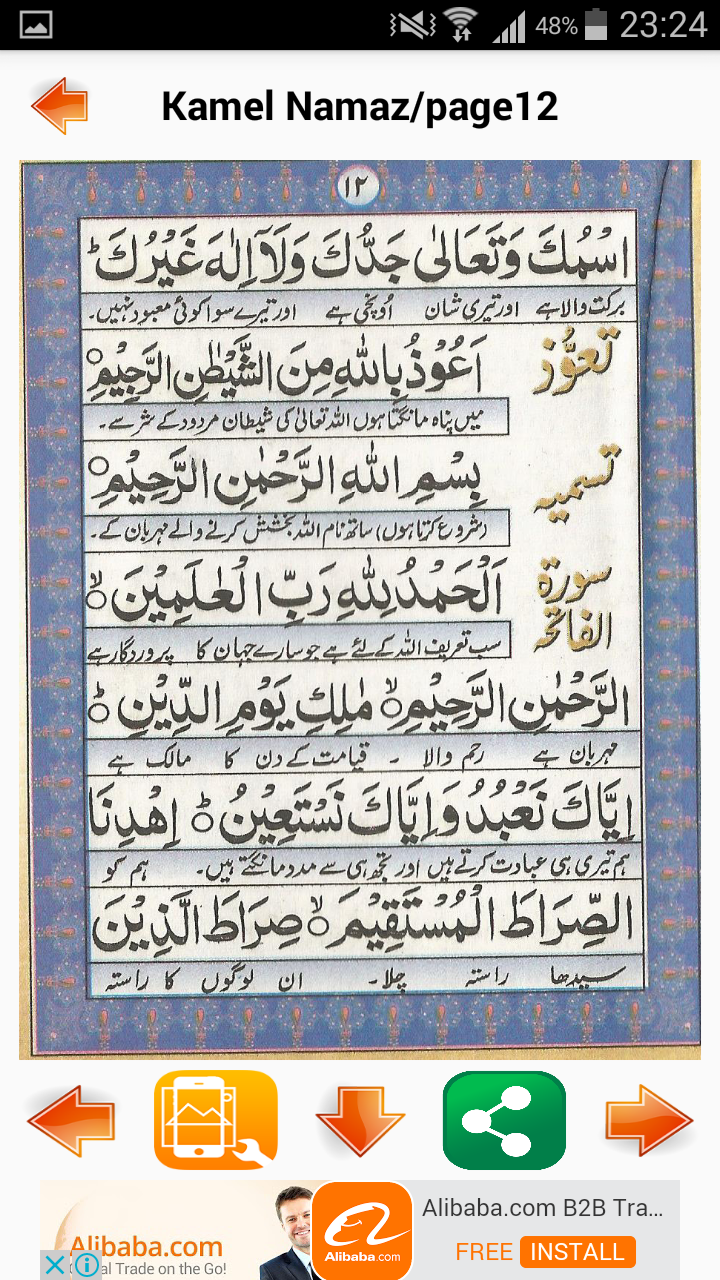 48% 23:24
Kamel Namaz/page12
١٢
اسْمُكَ وَتَعَالٰى جَدُّكَ وَلَآ اِلٰهَ غَيْرُكَ ؕ
برکت والا ہے اور تیری شان اُونچی ہے اور تیرے سوا کوئی معبود نہیں۔
تعوُّذ
اَعُوْذُ بِاللهِ مِنَ الشَّيْطٰنِ الرَّجِيْمِ ○
میں پناہ مانگتا ہوں اللہ تعالیٰ کی شیطان مردود کے شر سے۔
تسمیہ
بِسْمِ اللهِ الرَّحْمٰنِ الرَّحِيْمِ ○
(شروع کرتا ہوں) ساتھ نام اللہ بخشش کرنے والے مہربان کے۔
سورة الفاتحہ
اَلْحَمْدُ لِلّٰهِ رَبِّ الْعٰلَمِيْنَ ○ۙ
سب تعریف اللہ کے لئے ہے جو سارے جہان کا پروردگار ہے
الرَّحْمٰنِ الرَّحِيْمِ ○ۙ مٰلِكِ يَوْمِ الدِّيْنِ ○ؕ
مہربان ہے رحم والا ۔ قیامت کے دن کا مالک ہے
اِيَّاكَ نَعْبُدُ وَاِيَّاكَ نَسْتَعِيْنُ ○ؕ اِهْدِنَا
ہم تیری ہی عبادت کرتے ہیں اور تجھ ہی سے مدد مانگتے ہیں۔ ہم کو
الصِّرَاطَ الْمُسْتَقِيْمَ ○ۙ صِرَاطَ الَّذِيْنَ
سیدھا راستہ چلا۔ ان لوگوں کا راستہ
Alibaba.com
al Trade on the Go!
Alibaba.com
Alibaba.com B2B Tra...
FREE INSTALL